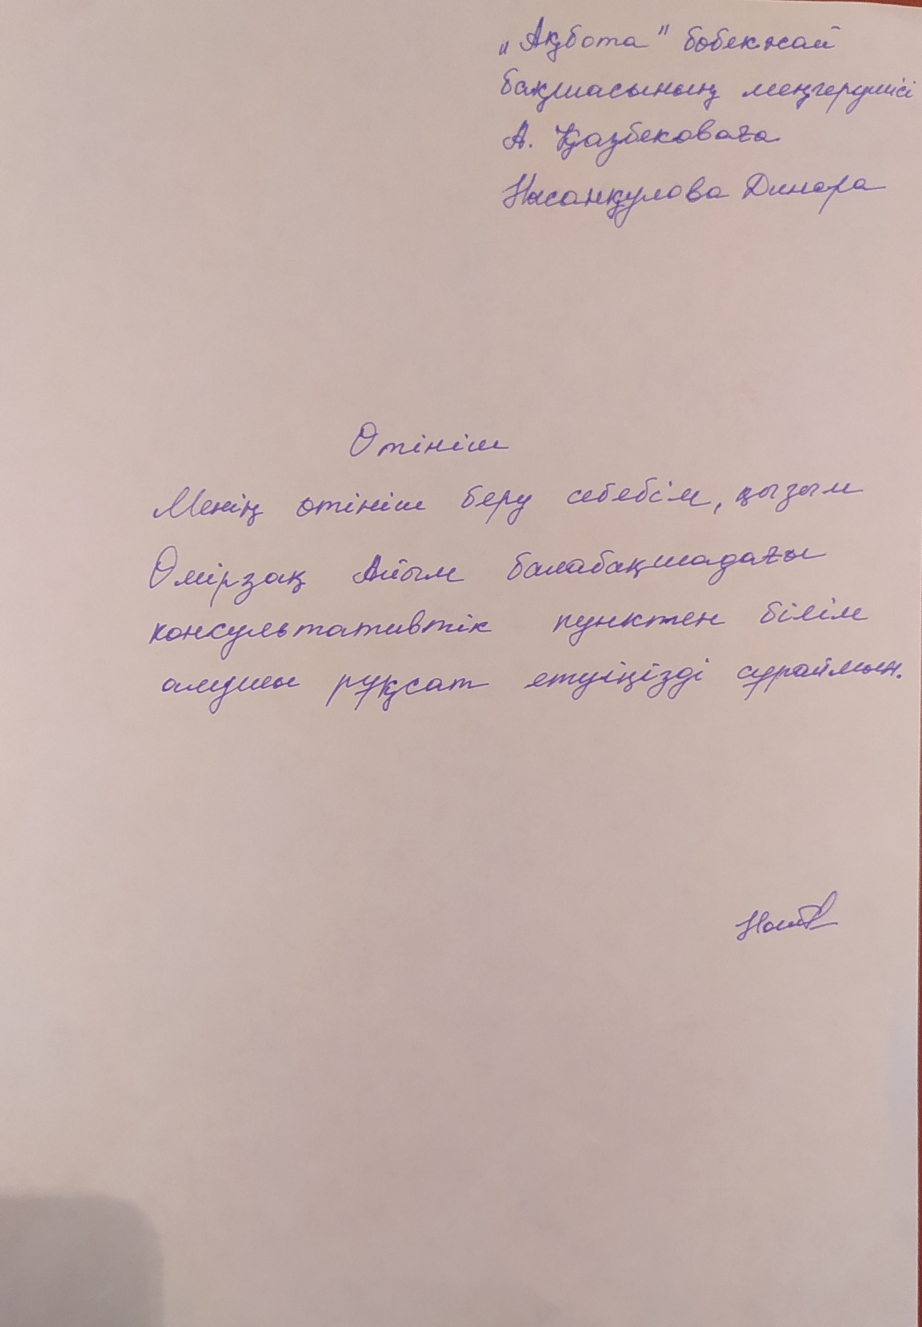 "Ақбота" бөбекжай
бақшасының меңгерушісі
А. Қазбековаға
Нысанқулова Динара
Өтініш
Менің өтініш беру себебім, қызым
Өмірзақ Айым балабақшадағы
консультативтік пунктен білім
алушы рұқсат етуіңізді сұраймын.